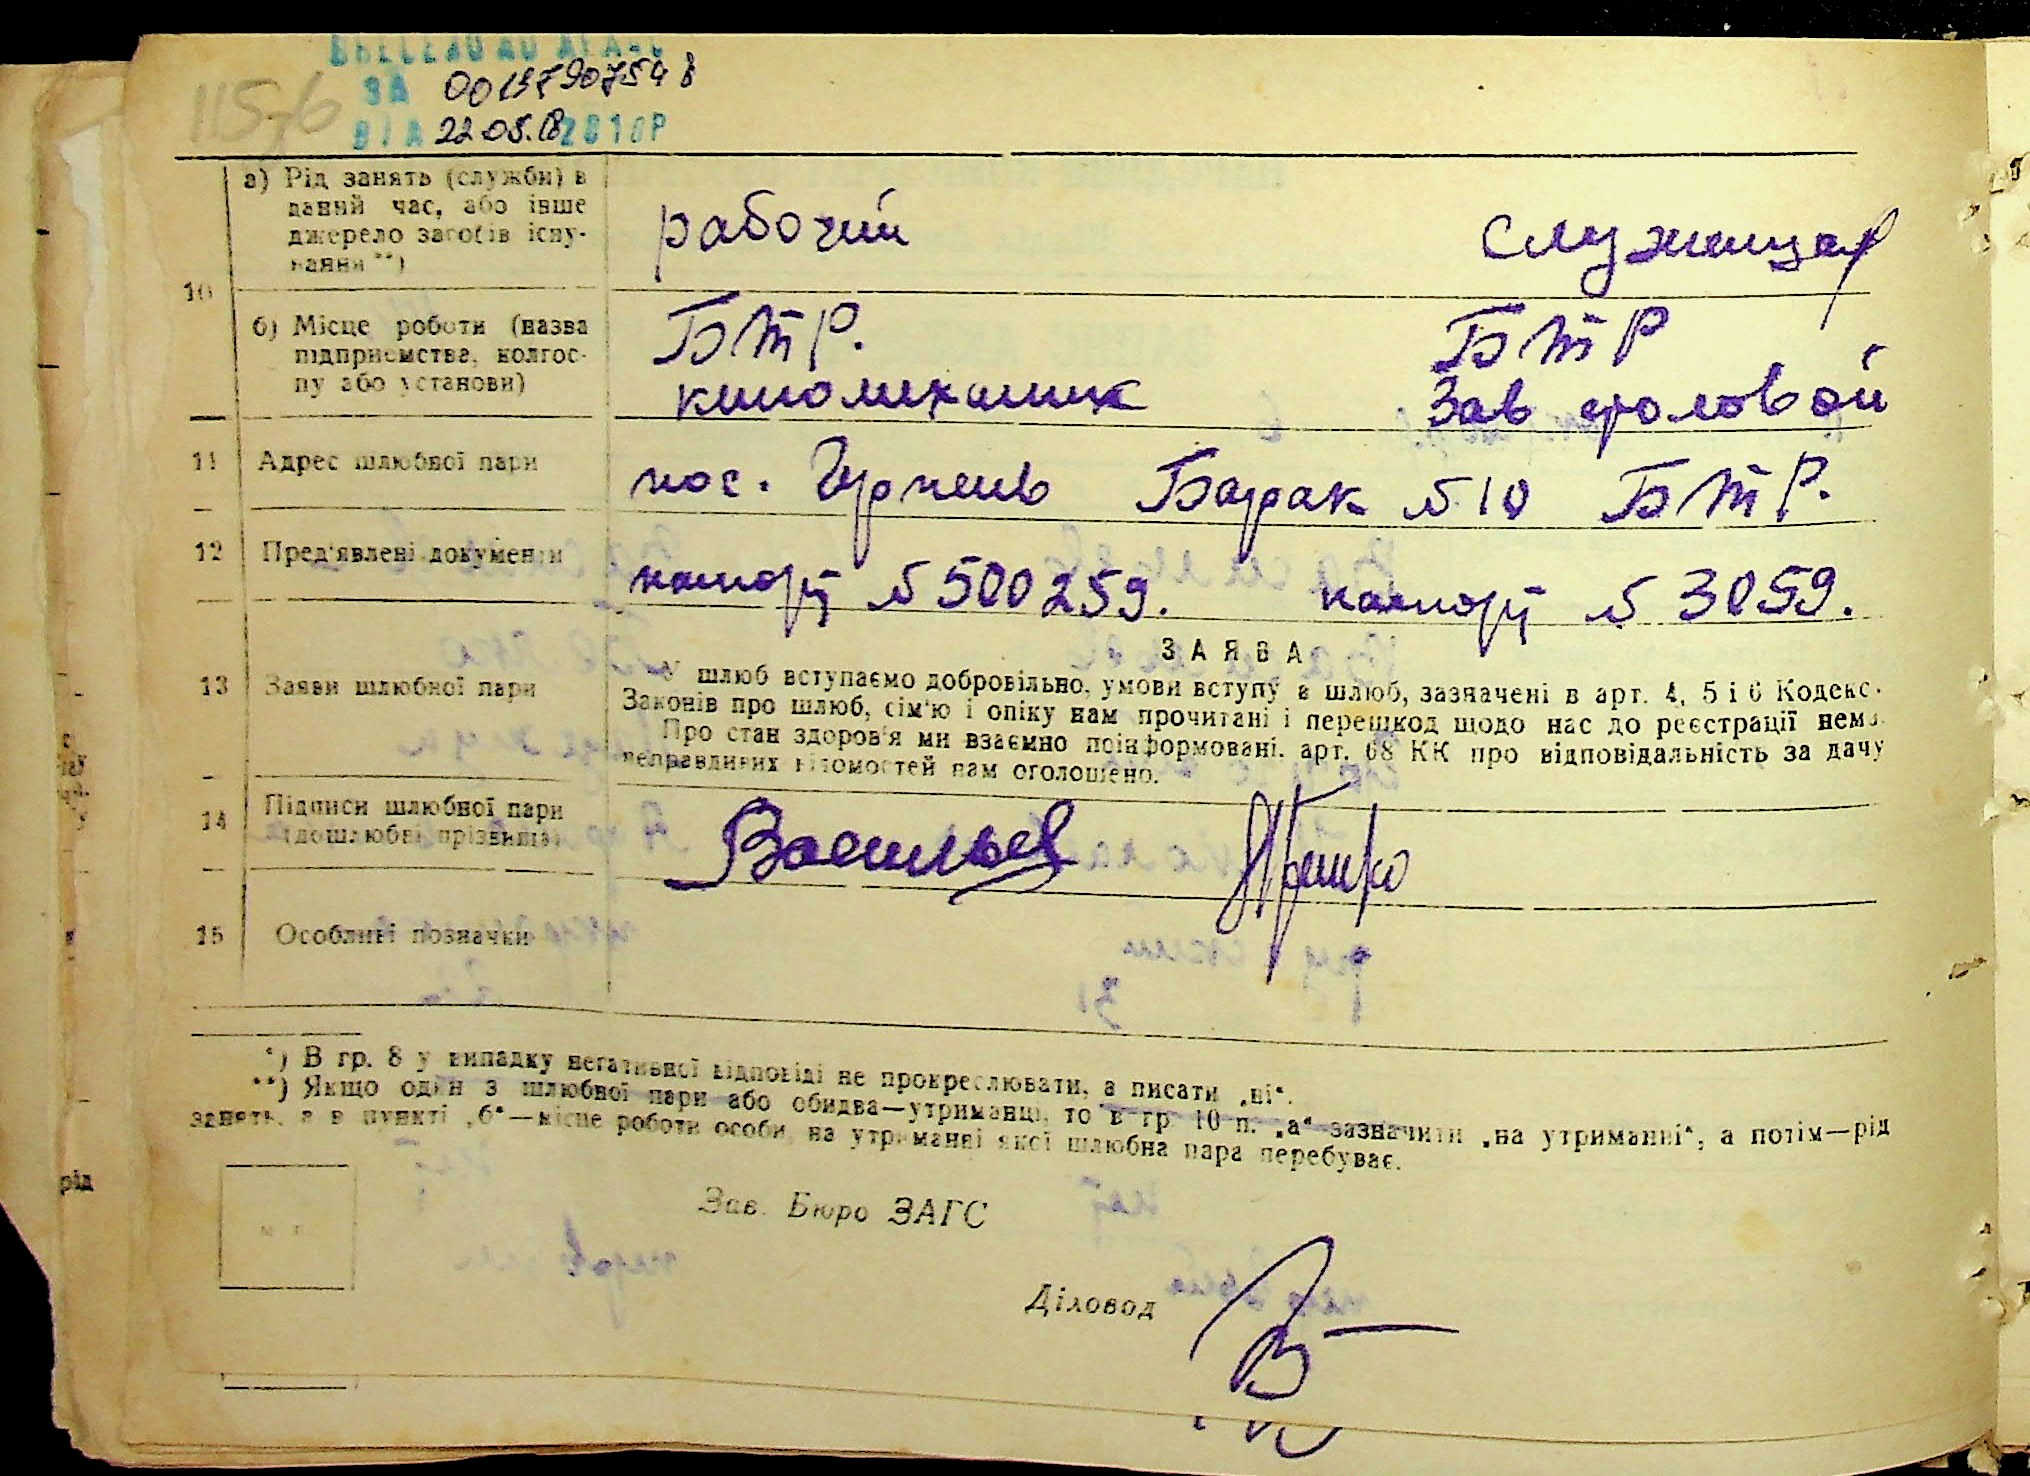 ВНЕСЕНО ДО ДРАЦС
ЗА 00197907548
ВІД 22.05.18 2018Р
115-б
10
а) Рід занять (служби) в
даний час, або інше
джерело засобів існу-
вання **)
рабочий служащая
б) Місце роботи (назва
підприємства, колгос-
пу або установи)
БТР. БТР
киномеханик Зав столовой
11 Адрес шлюбної пари
пос. Ирпень Барак №10 БТР.
12 Пред'явлені документи
паспорт №500259. паспорт №3059.
13 Заяви шлюбної пари
ЗАЯВА
У шлюб вступаємо добровільно, умови вступу в шлюб, зазначені в арт. 4, 5 і 6 Кодекс.
Законів про шлюб, сім'ю і опіку нам прочитані і перешкод щодо нас до реєстрації нема.
Про стан здоров'я ми взаємно поінформовані. арт. 68 КК про відповідальність за дачу
неправдивих відомостей нам оголошено.
14 Підписи шлюбної пари
(дошлюбні прізвища)
Васильев
15 Особливі позначки
*) В гр. 8 у випадку негативної відповіді не прокреслювати, а писати „ні“.
**) Якщо один з шлюбної пари або обидва—утриманці, то в гр. 10 п. „а“ зазначити „на утриманні“, а потім—рід
занять, а в пункті „б“—місце роботи особи, на утриманні якої шлюбна пара перебуває.
М П
Зав. Бюро ЗАГС
Діловод
рід